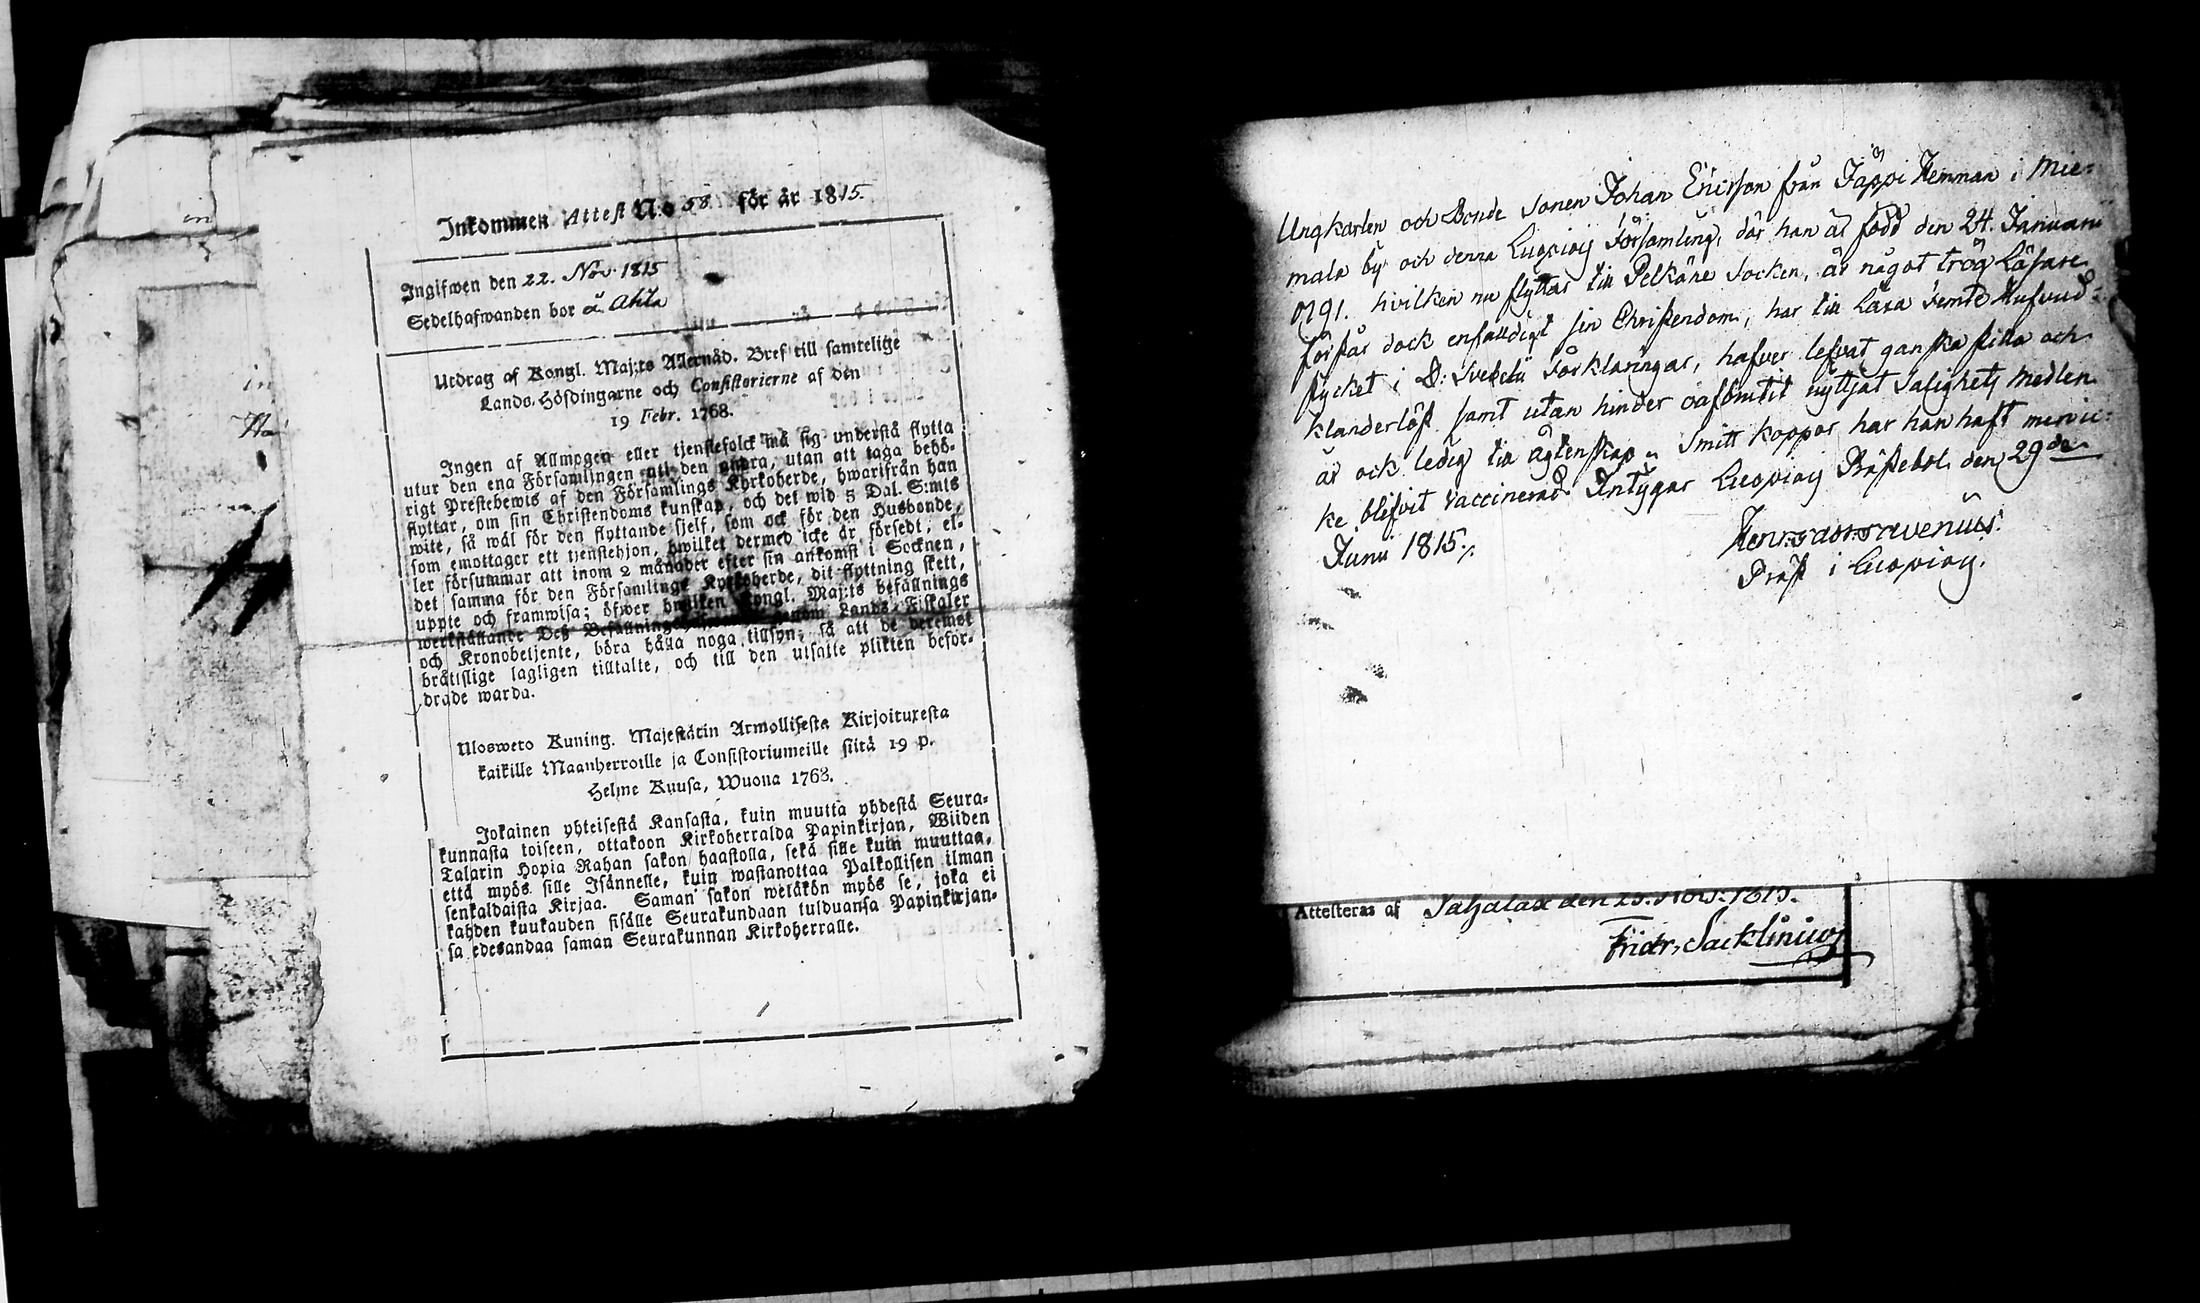 Inkommen Attest N:o 58 för år 1815.
Ingifwen den 22. Nov. 1815
Sedelhafwanden bor å Ahla
Utdrag af Kongl. Maj:ts Allernåd. Bref till samtelige
Lands-Höfdingarne och Consistorierne af den
19 Febr. 1768.
Ingen af Allmogen eller tjenstefolck må sig understå flytta
utur den ena Församlingen till den andra, utan att taga behö-
rigt Prestebewis af den Församlings Kyrkoherde, hwarifrån han
flyttar, om sin Christendoms kunskap, och det wid 5 Dal. S:mts
wite, så wäl för den flyttande sjelf, som ock för den Husbonde,
som emottager ett tjenstehjon, hwilket dermed icke är försedt, el-
ler försummar att inom 2 månader efter sin ankomst i Socknen,
det samma för den Församlings Kyrkoherde, dit flyttning skett,
uppte och framwisa; öfwer hwilken Kongl. Maj:ts befallnings
werkställande Deß Befallningshafwande genom Lands-Fiskaler
och Kronobetjente, böra hålla noga tillsyn, så att de deremot
bråttslige lagligen tilltalte, och till den utsatte plikten befor-
drade warda.
Ulosweto Kuning. Majestätin Armollisesta Kirjoituxesta
kaikille Maanherroille ja Consistoriumeille siitä 19 p.
Helme Kuusa, Wuona 1768.
Jokainen yhteisestä Kansasta, kuin muutta yhdestä Seura-
kunnasta toiseen, ottakoon Kirkoherralda Papinkirjan, Wiiden
Talarin Hopia Rahan sakon haastolla, sekä sille kuin muuttaa,
että myös sille Isännelle, kuin wastanottaa Palkollisen ilman
senkaldaista Kirjaa. Saman sakon wetäkön myös se, joka ei
kahden kuukauden sisälle Seurakundaan tulduansa Papinkirjan-
sa edesandaa saman Seurakunnan Kirkoherralle.
Ungkarlen och Bonde Sonen Johan Ericsson från Jäppi Hemman i Mie-
mala by och denna Luopiois Församling, där han är född den 24. Januari
1791. hvilken nu flyttar till Pelkäne Socken, är något trög Läsare
förstår dock enfaldigt sin Christendom, har till Lära Femte Hufvud-
stycket i D: Svebelii Förklaringar, hafver lefvat ganska stilla och
klanderlöst samt utan hinder oafbrutit nyttjat Salighets Medlen
är ock ledig till ägtenskap. Smitt koppor har han haft men ic-
ke blifvit vaccinerad. Intygar Luopiois Prästebol den 29de
Junii 1815.
Præst i Luopiois.
Attesteras af Sahalax den 25. Nov. 1815.
Fridr. Sacklinius